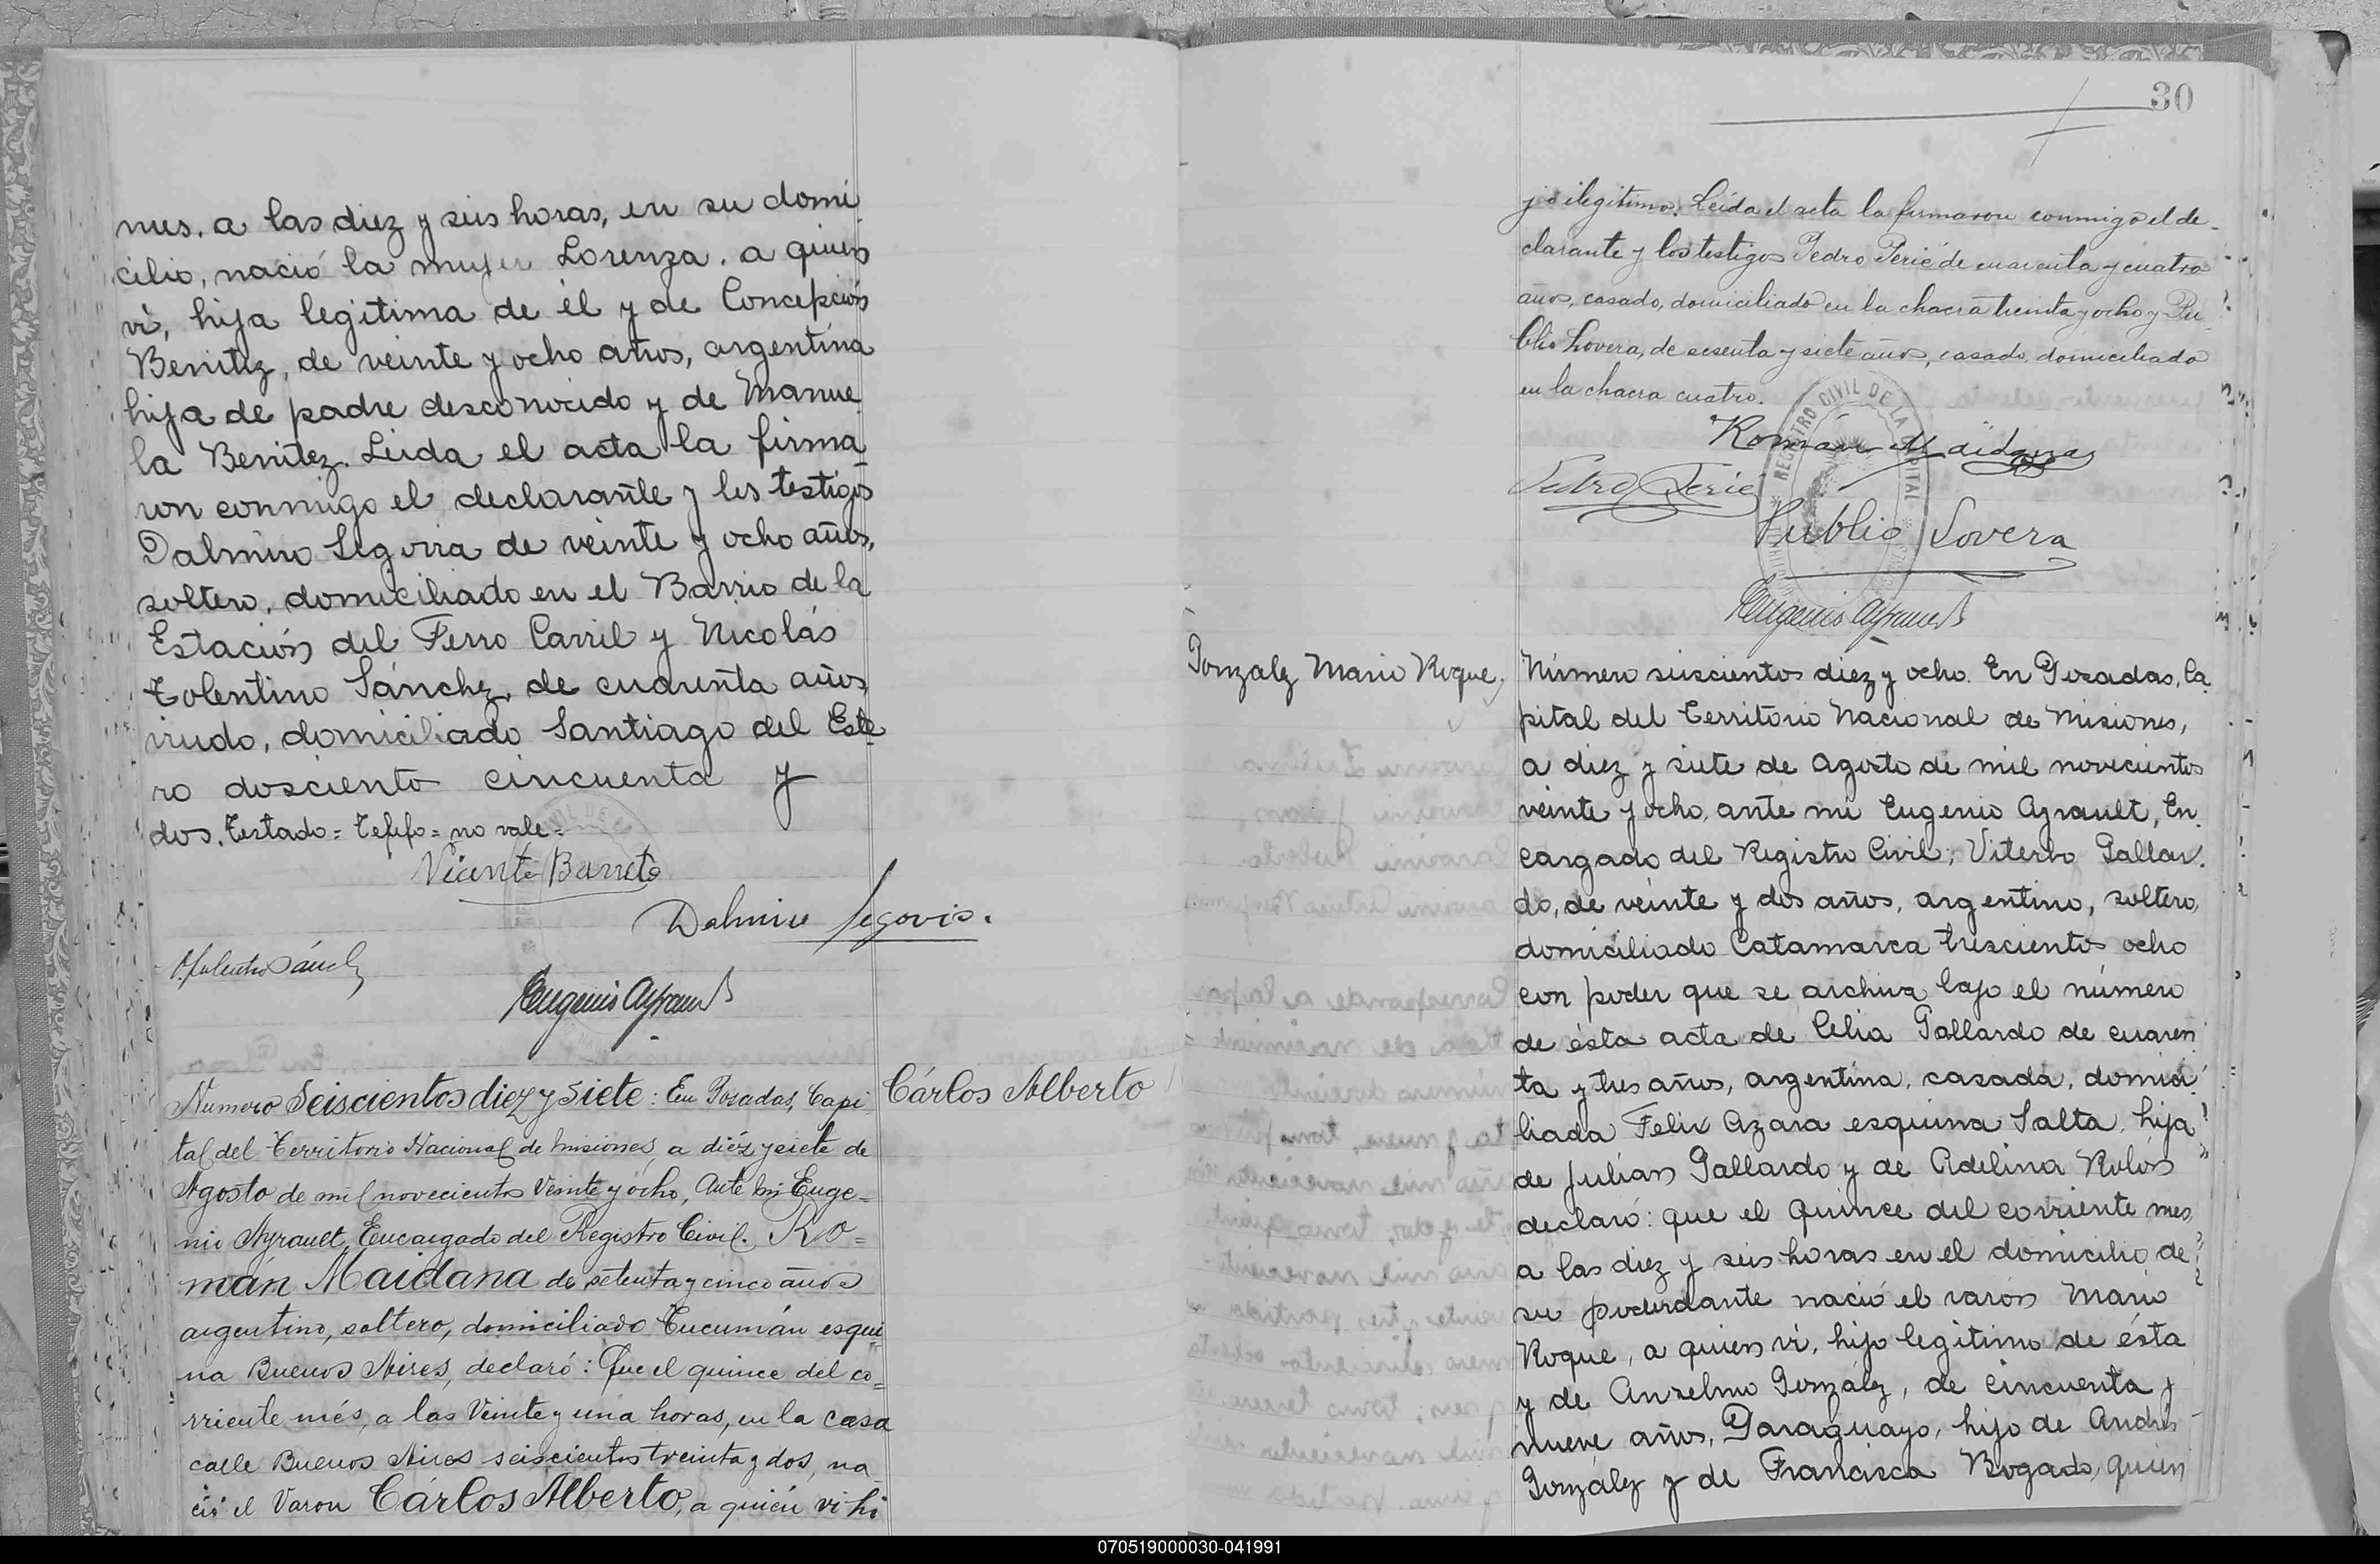 mes, a las diez y seis horas, en su domi
cilio, nació la mujer Lorenza, a quien
ví, hija legitima de él y de Concepción
Benitez, de veinte y ocho años, argentina
hija de padre desconocido y de Manue
la Benitez. Leida el acta la firma
ron conmigo el declarante y los testigos
Dalmiro Segovia de veinte y ocho años,
soltero, domiciliado en el Barrio de la
Estación del Ferro Carril y Nicolás
Tolentino Sánchez, de cuarenta años,
viudo, domiciliado Santiago del Este
ro dosciento cincuenta y
dos. Testado = Tefefo = no vale =
Vicente Barreto
Dalmiro Segovia.
Eugenio Ayrault
Numero Seiscientos diez y siete: En Posadas, Capi
tal del Territorio Nacional de Misiones, a diéz y siete de
Agosto de mil novecientos Veinte y ocho, Ante mi Euge=
nio Ayrault, Encargado del Registro Civil. Ro=
mán Maidana de setenta y cinco años
argentino, soltero, domiciliado Tucumán esqui
na Buenos Aires, declaró: Que el quince del co=
rriente més, a las Veinte y una horas, en la casa
calle Buenos Aires seiscientos treinta y dos, na
ció el Varon Cárlos Alberto, a quién vi hi
Cárlos Alberto
30
jo ilegitimo. Leida el acta la firmaron conmigo el de-
clarante y los testigos Pedro Perié de cuarenta y cuatro
años, casado, domiciliado en la chacra treinta y ocho y Pu
blio Lovera, de sesenta y siete años, casado, domiciliado
en la chacra cuatro.
REGISTRO CIVIL DE LA CAPITAL
Román Maidana
Pedro Perié
Publio Lovera
Eugenio Ayrault
Gonzalez Mario Roque,
Número seiscientos diez y ocho. En Posadas, Ca
pital del Territorio Nacional de Misiones,
a diez y siete de Agosto de mil novecientos
veinte y ocho, ante mi Eugenio Ayrault, En
cargado del Registro Civil; Viterbo Gallar.
do, de veinte y dos años, argentino, soltero,
domiciliado Catamarca trescientos ocho
con poder que se archiva bajo el número
de ésta acta de Celia Gallardo de cuaren
ta y tres años, argentina, casada, domici
liada Felix Azara esquina Salta, hija
de Julián Gallardo y de Adelina Rolón
declaró: que el quince del corriente mes,
a las diez y seis horas en el domicilio de
su poderdante nació el varón Mario
Roque, a quien ví, hijo legitimo de ésta
y de Anselmo González, de cincuenta y
nueve años, Paraguayo, hijo de Andrés
González y de Francisca Bogado, quien
070519000030-041991